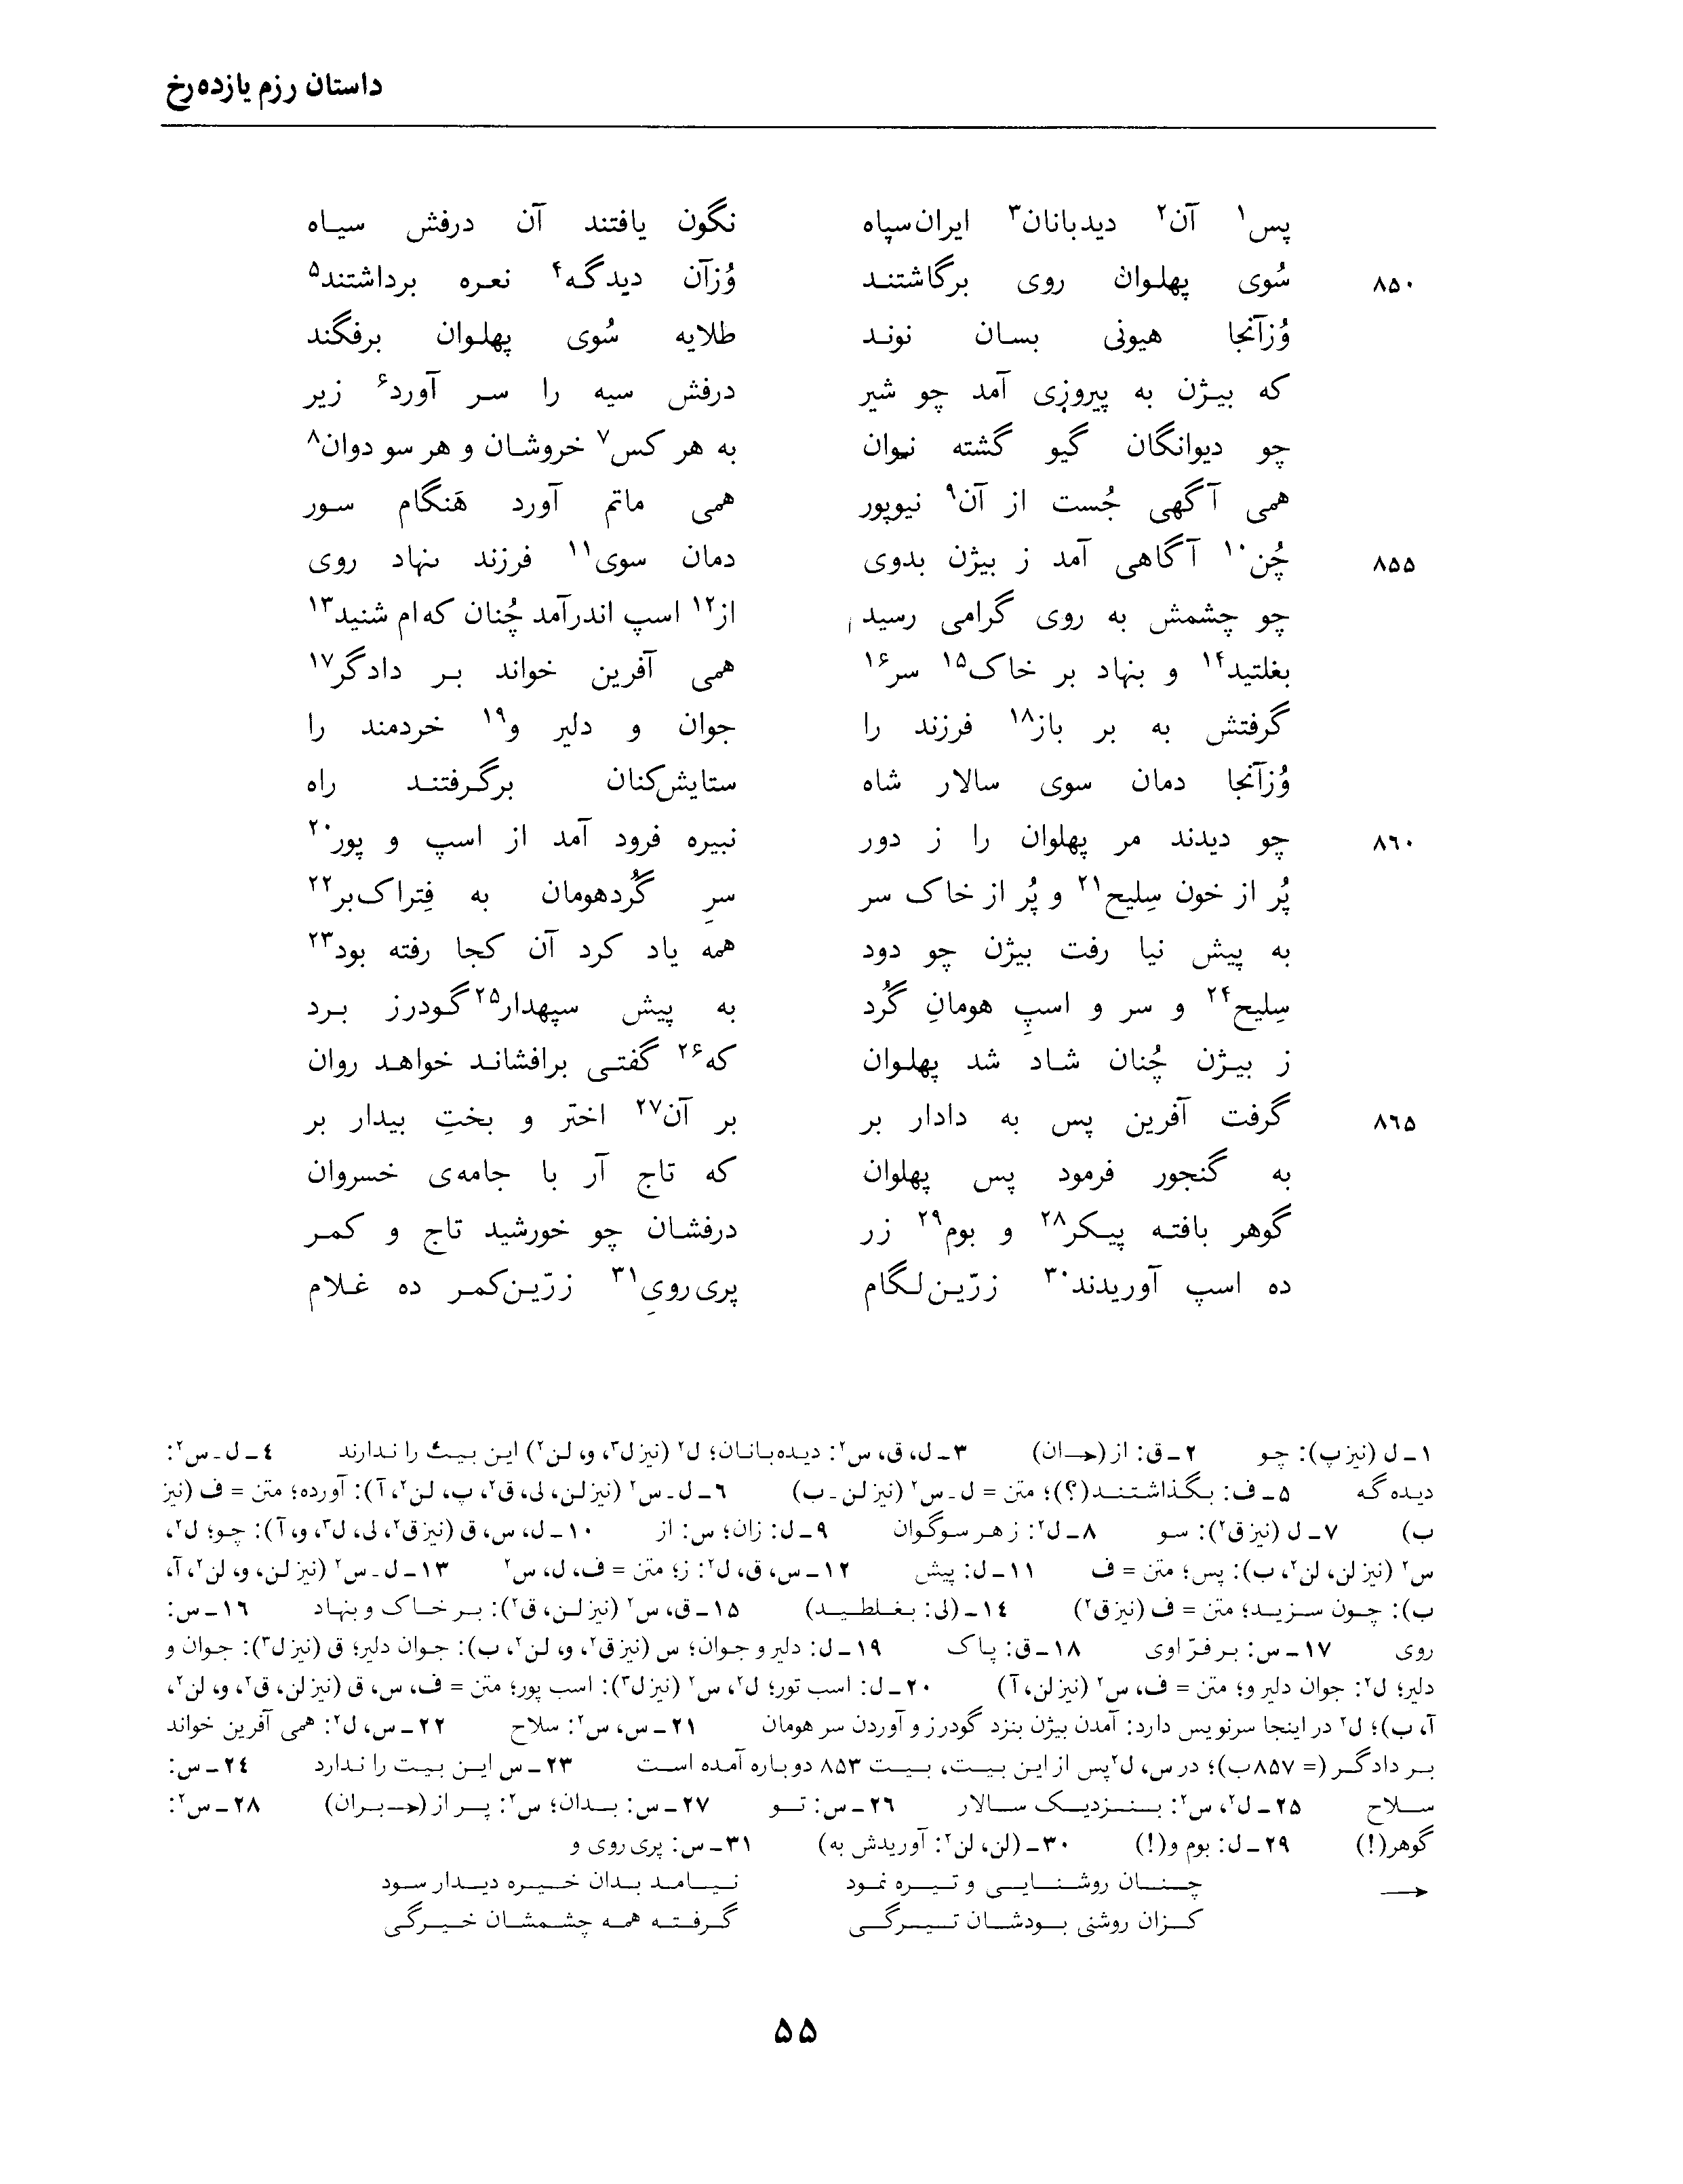 داستان رزم یازده‌رخ
پس۱ آن۲ دیدبانان۳ ایران‌سپاه نگون یافتند آن درفش سیاه
۸۵۰ سُوی پهلوان روی برگاشتند وُزآن دیدگه۴ نعره برداشتند۵
وُزآنجا هیونی بسان نوند طلایه سُوی پهلوان برفگند
که بیژن به پیروزی آمد چو شیر درفش سیه را سر آورد۶ زیر
چو دیوانگان گیو گشته نوان به هر کس۷ خروشان و هر سو دوان۸
همی آگهی جُست از آن۹ نیوپور همی ماتم آورد هَنگام سور
۸۵۵ چُن۱۰ آگاهی آمد ز بیژن بدوی دمان سوی۱۱ فرزند بنهاد روی
چو چشمش به روی گرامی رسید از۱۲ اسپ اندرآمد چُنان که‌ام شنید۱۳
بغلتید۱۴ و بنهاد بر خاک۱۵ سر۱۶ همی آفرین خواند بر دادگر۱۷
گرفتش به بر باز۱۸ فرزند را جوان و دلیر و۱۹ خردمند را
وُزآنجا دمان سوی سالار شاه ستایش‌کنان برگرفتند راه
۸۶۰ چو دیدند مر پهلوان را ز دور نبیره فرود آمد از اسپ و پور۲۰
پُر از خون سِلیح۲۱ و پُر از خاک سر سرِ گُردهومان به فِتراک‌بر۲۲
به پیش نیا رفت بیژن چو دود همه یاد کرد آن کجا رفته بود۲۳
سِلیح۲۴ و سر و اسپِ هومانِ گُرد به پیش سپهدار۲۵ گودرز برد
ز بیژن چُنان شاد شد پهلوان که۲۶ گفتی برافشاند خواهد روان
۸۶۵ گرفت آفرین پس به دادار بر بر آن۲۷ اختر و بختِ بیدار بر
به گنجور فرمود پس پهلوان که تاج آر با جامه‌ی خسروان
گوهر بافته پیکر۲۸ و بوم۲۹ زر درفشان چو خورشید تاج و کمر
ده اسپ آوریدند۳۰ زرّین‌لگام پری‌رویِ۳۱ زرّین‌کمر ده غلام
۱ـ ل (نیز پ): چو ۲ـ ق: از (←ان) ۳ـ ل، ق، س۲: دیده‌بانان؛ ل۲ (نیز ل۳، و، لن۲) این بیت را ندارند ٤ـ ل ـ س۲:
دیده گه ۵ـ ف: بگذاشتند(؟)؛ متن = ل ـ س۲ (نیز لن ـ ب) ٦ـ ل ـ س۲ (نیز لن، لی، ق۲، پ، لن۲، آ): آورده؛ متن = ف (نیز
ب) ۷ـ ل (نیز ق۲): سو ۸ـ ل۲: ز هر سوگوان ۹ـ ل: زان؛ س: از ۱۰ـ ل، س، ق (نیز ق۲، لی، ل۳، و، آ): چو؛ ل۲،
س۲ (نیز لن، لن۲، ب): پس؛ متن = ف ۱۱ـ ل: پیش ۱۲ـ س، ق، ل۲: ز؛ متن = ف، ل، س۲ ۱۳ـ ل ـ س۲ (نیز لن، و، لن۲، آ،
ب): چون سزید؛ متن = ف (نیز ق۲) ۱٤ـ (لی: بغلطید) ۱۵ـ ق، س۲ (نیز لن، ق۲): بر خاک و بنهاد ۱٦ـ س:
روی ۱۷ـ س: بر فرّ اوی ۱۸ـ ق: پاک ۱۹ـ ل: دلیر و جوان؛ س (نیز ق۲، و، لن۲، ب): جوان دلیر؛ ق (نیز ل۳): جوان و
دلیر؛ ل۲: جوان دلیر و؛ متن = ف، س۲ (نیز لن، آ) ۲۰ـ ل: اسب تور؛ ل۲، س۲ (نیز ل۳): اسب پور؛ متن = ف، س، ق (نیز لن، ق۲، و، لن۲،
آ، ب)؛ ل۲ در اینجا سرنویس دارد: آمدن بیژن بنزد گودرز و آوردن سر هومان ۲۱ـ س، س۲: سلاح ۲۲ـ س، ل۲: همی آفرین خواند
بر دادگر (= ۸۵۷ب)؛ در س، ل۲ پس از این بیت، بیت ۸۵۳ دوباره آمده است ۲۳ـ س این بیت را ندارد ۲٤ـ س:
سلاح ۲۵ـ ل۲، س۲: بنزدیک سالار ۲٦ـ س: تو ۲۷ـ س: بدان؛ س۲: پر از (←بران) ۲۸ـ س۲:
گوهر(!) ۲۹ـ ل: بوم و(!) ۳۰ـ (لن، لن۲: آوریدش به) ۳۱ـ س: پری روی و
← چنان روشنایی و تیره نمود نیامد بدان خیره دیدار سود
کزان روشنی بودشان تیرگی گرفته همه چشمشان خیرگی
۵۵